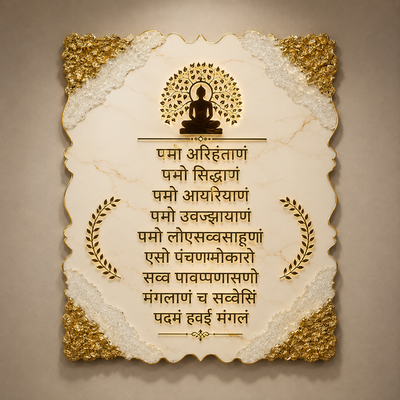 पमा अरिहंताणं
पमो सिद्धाणं
पमो आयरियाणं
पमो उवज्झायाणं
पमो लोएसव्वसाहूणां
एसो पंचणमोकारो
सव्व पावप्पणासणो
मंगलाणं च सव्वेसिं
पदमं हवई मंगलं